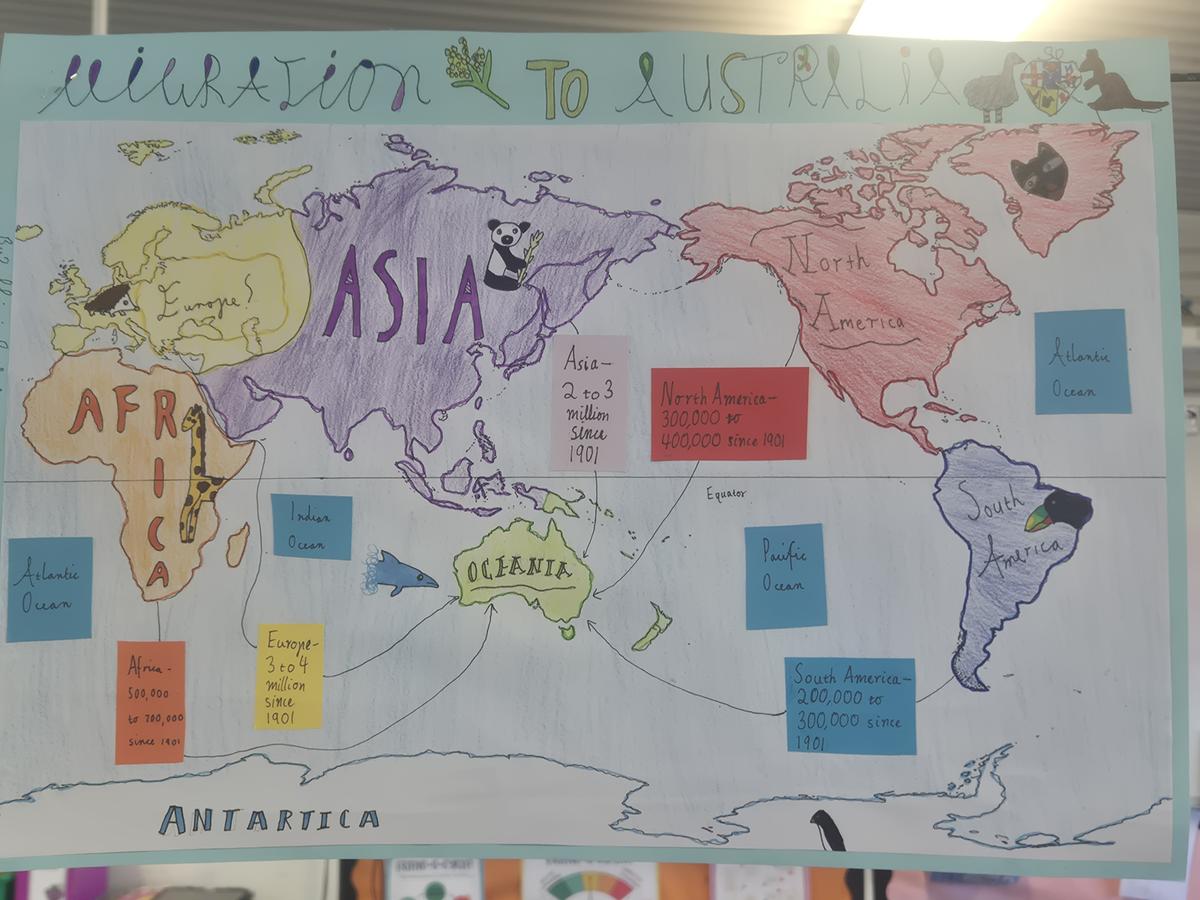 MIGRATION TO AUSTRALIA
ASIA
North
America
Europe
AFRICA
Asia-
2 to 3
million
since
1901
North America-
300,000 to
400,000 since 1901
Atlantic
Ocean
Equator
Indian
Ocean
South
America
OCEANIA
Pacific
Ocean
Atlantic
Ocean
Africa-
500,000
to 700,000
since 1901
Europe-
3 to 4
million
since
1901
South America-
200,000 to
300,000 since
1901
ANTARTICA